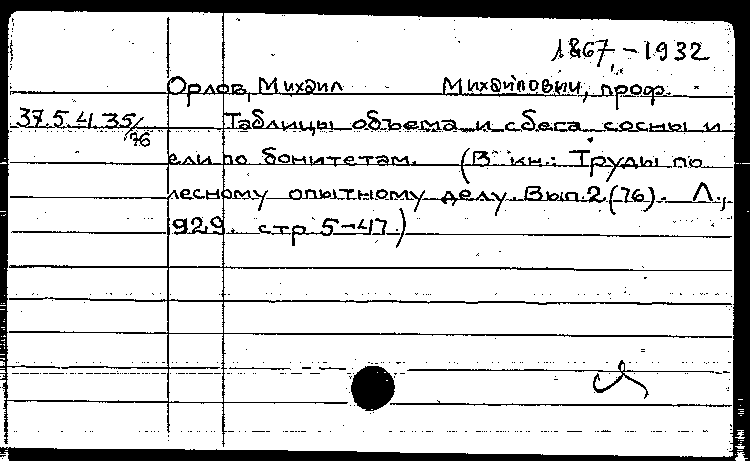 1867,-1932
Орлов, Михаил Михайлович, проф.
37.5.4.35/76 Таблицы объема и сбега сосны и
ели по бонитетам. (В кн.: Труды по
лесному опытному делу. Вып.2(76). Л.,
929. стр 5-47.)